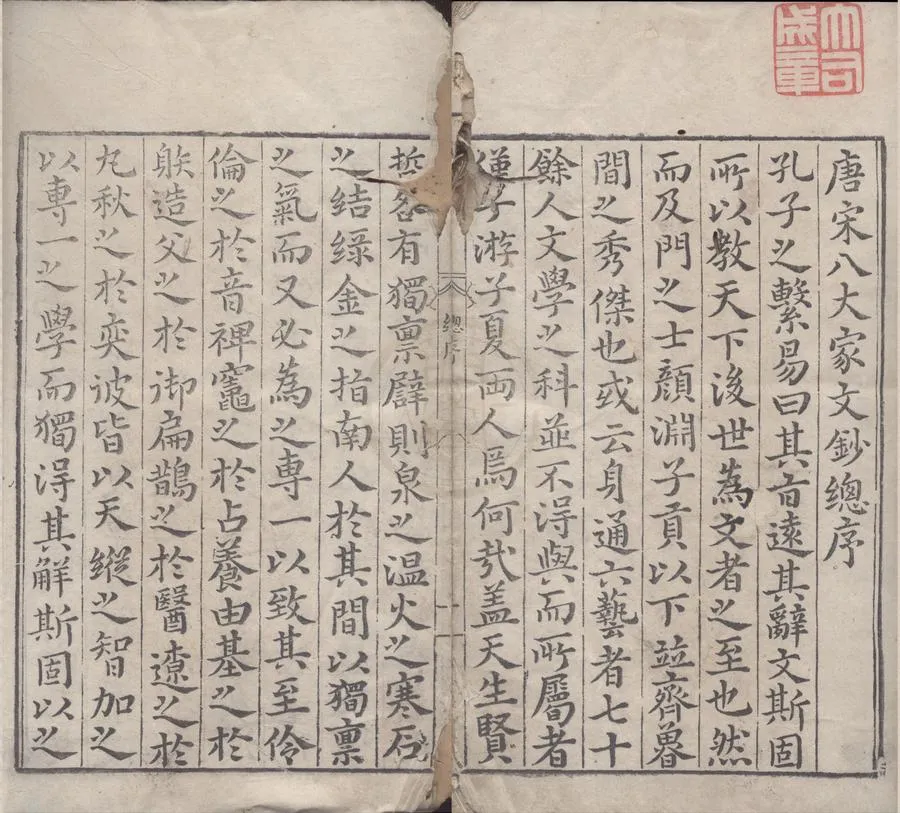 大司
成章
唐宋八大家文鈔總序
孔子之繫易曰其旨遠其辭文斯固
所以教天下後世為文者之至也然
而及門之士顏淵子貢以下並齊魯
間之秀傑也或云身通六藝者七十
餘人文學之科並不得與而所屬者
僅子游子夏兩人焉何哉盖天生賢
總序
一
哲各有獨禀譬則泉之温火之寒石
之结緑金之指南人於其間以獨禀
之氣而又必為之專一以致其至伶
倫之於音裨竈之於占養由基之於
䠶造父之於御扁鵲之於醫遼之於
丸秋之於奕彼皆以天縱之智加之
以專一之學而獨得其解斯固以之